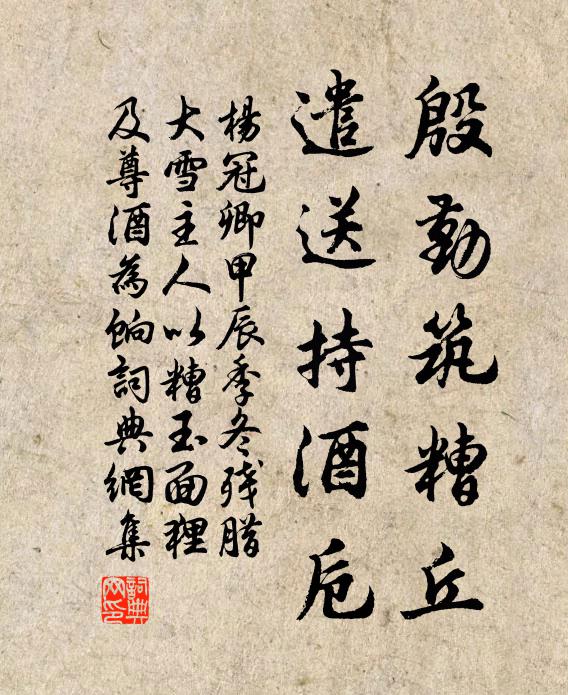 殷勤筑糟丘
遣送持酒卮
楊冠卿甲辰季冬残腊
大雪主人以糟玉面狸
及尊酒為餉詞典網集
詞典
网印